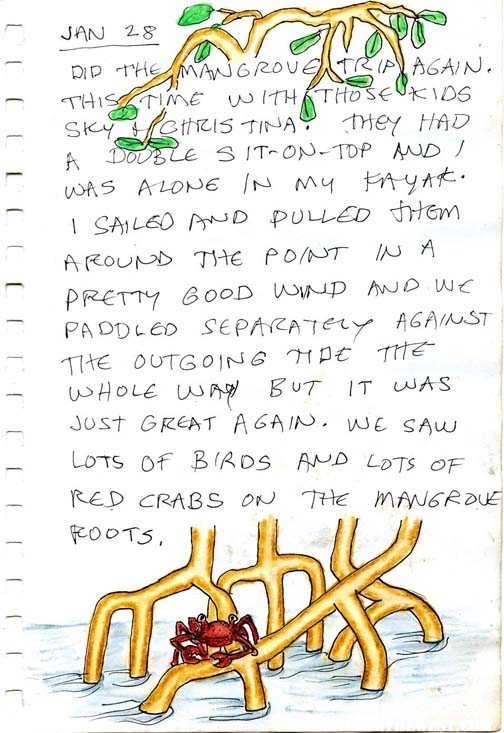 JAN 28
DID THE MANGROVE TRIP AGAIN.
THIS TIME WITH THOSE KIDS
SKY & CHRISTINA. THEY HAD
A DOUBLE SIT-ON-TOP AND I
WAS ALONE IN MY KAYAK.
I SAILED AND PULLED THEM
AROUND THE POINT IN A
PRETTY GOOD WIND AND WE
PADDLED SEPARATELY AGAINST
THE OUTGOING TIDE THE
WHOLE WAY BUT IT WAS
JUST GREAT AGAIN. WE SAW
LOTS OF BIRDS AND LOTS OF
RED CRABS ON THE MANGROVE
ROOTS.